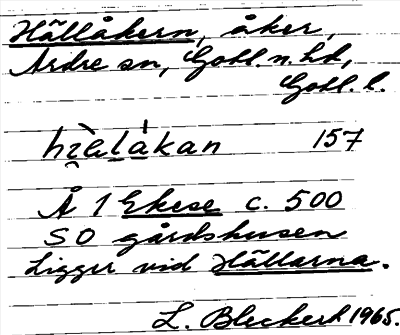 Hällåkern, åker,
Ardre sn, Gotl. n. hd,
Gotl. l.
hi̯èlákan 157
Å 1 Ekese c. 500
SO gårdshusen
Ligger vid Hällarna.
L. Bleckert 1965.